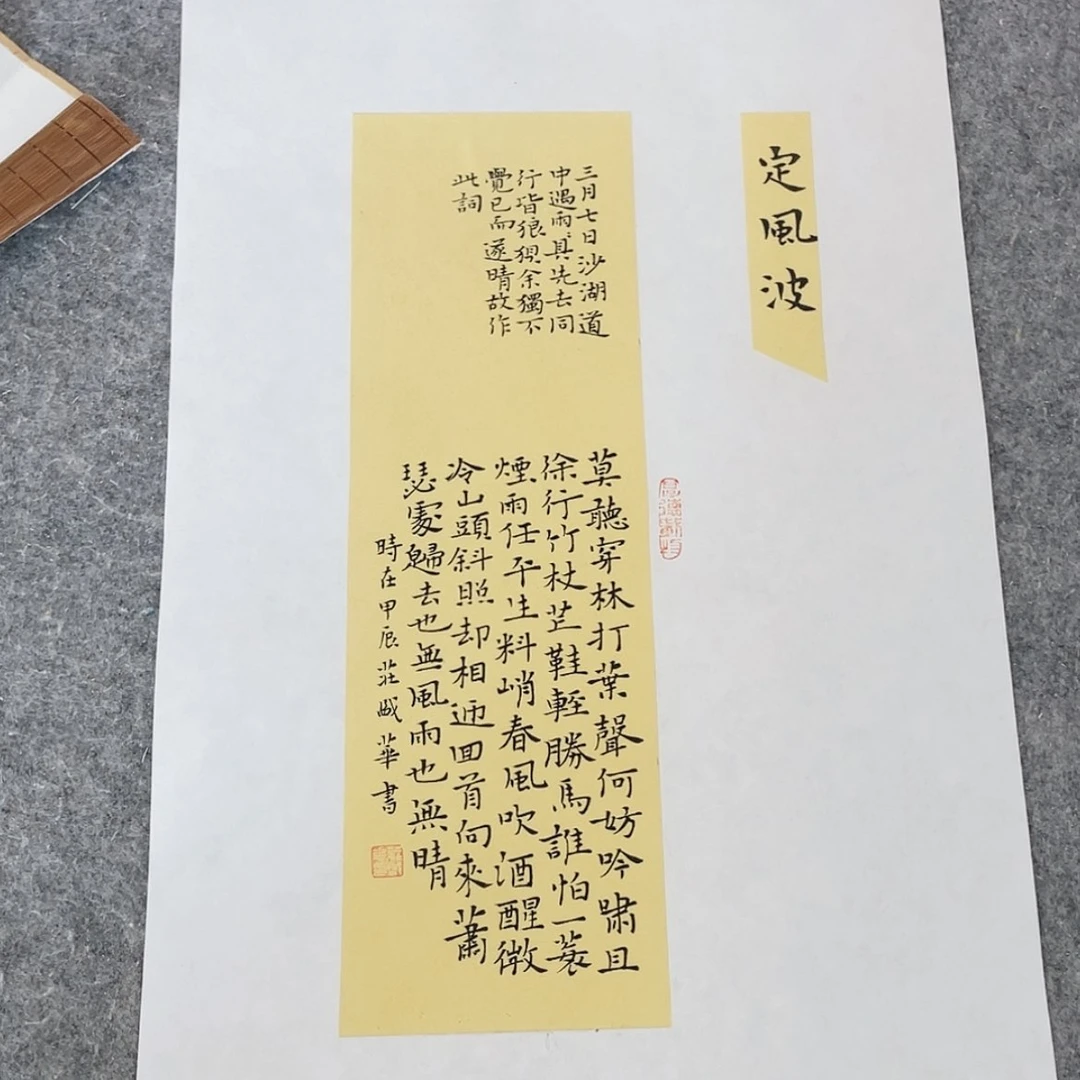 定風波
三月七日沙湖道
中遇雨〻具先去同
行皆狼狽余獨不
覺已而遂晴故作
此詞
莫聽穿林打葉聲何妨吟嘯且
徐行竹杖芒鞋輕勝馬誰怕一蓑
煙雨任平生料峭春風吹酒醒微
冷山頭斜照却相迎回首向來蕭
瑟處歸去也無風雨也無晴
時在甲辰莊華書